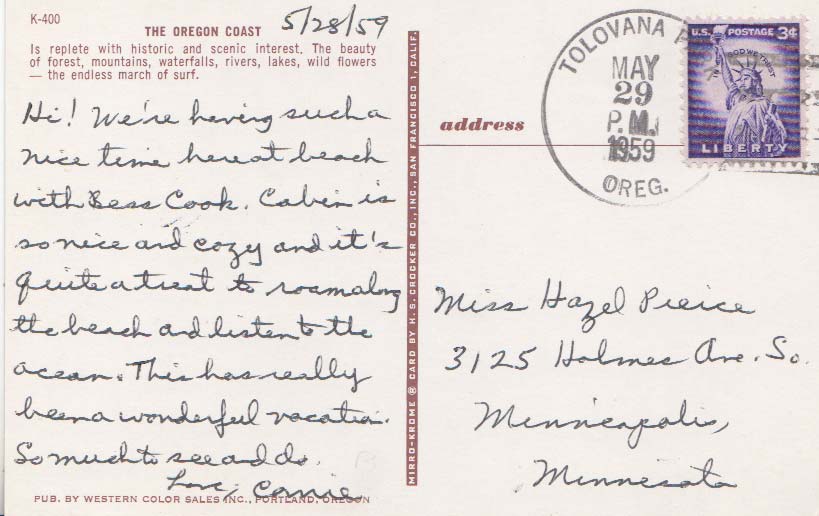 K-400
THE OREGON COAST
5/28/59
Is replete with historic and scenic interest. The beauty
of forest, mountains, waterfalls, rivers, lakes, wild flowers
— the endless march of surf.
Hi! We're having such a
nice time here at beach
with Bess Cook. Cabin is
so nice and cozy and it's
quite a treat to roam along
the beach and listen to the
ocean. This has really
been a wonderful vacation.
So much to see and do.
Love, Connie
PUB. BY WESTERN COLOR SALES INC., PORTLAND, OREGON
MIRRO-KROME ® CARD BY H. S. CROCKER CO., INC., SAN FRANCISCO 1, CALIF.
address
TOLOVANA
MAY
29
P.M.
1959
OREG.
U.S. POSTAGE 3¢
IN GOD WE TRUST
LIBERTY
Miss Hazel Pierce
3125 Holmes Ave. So.
Minneapolis,
Minnesota